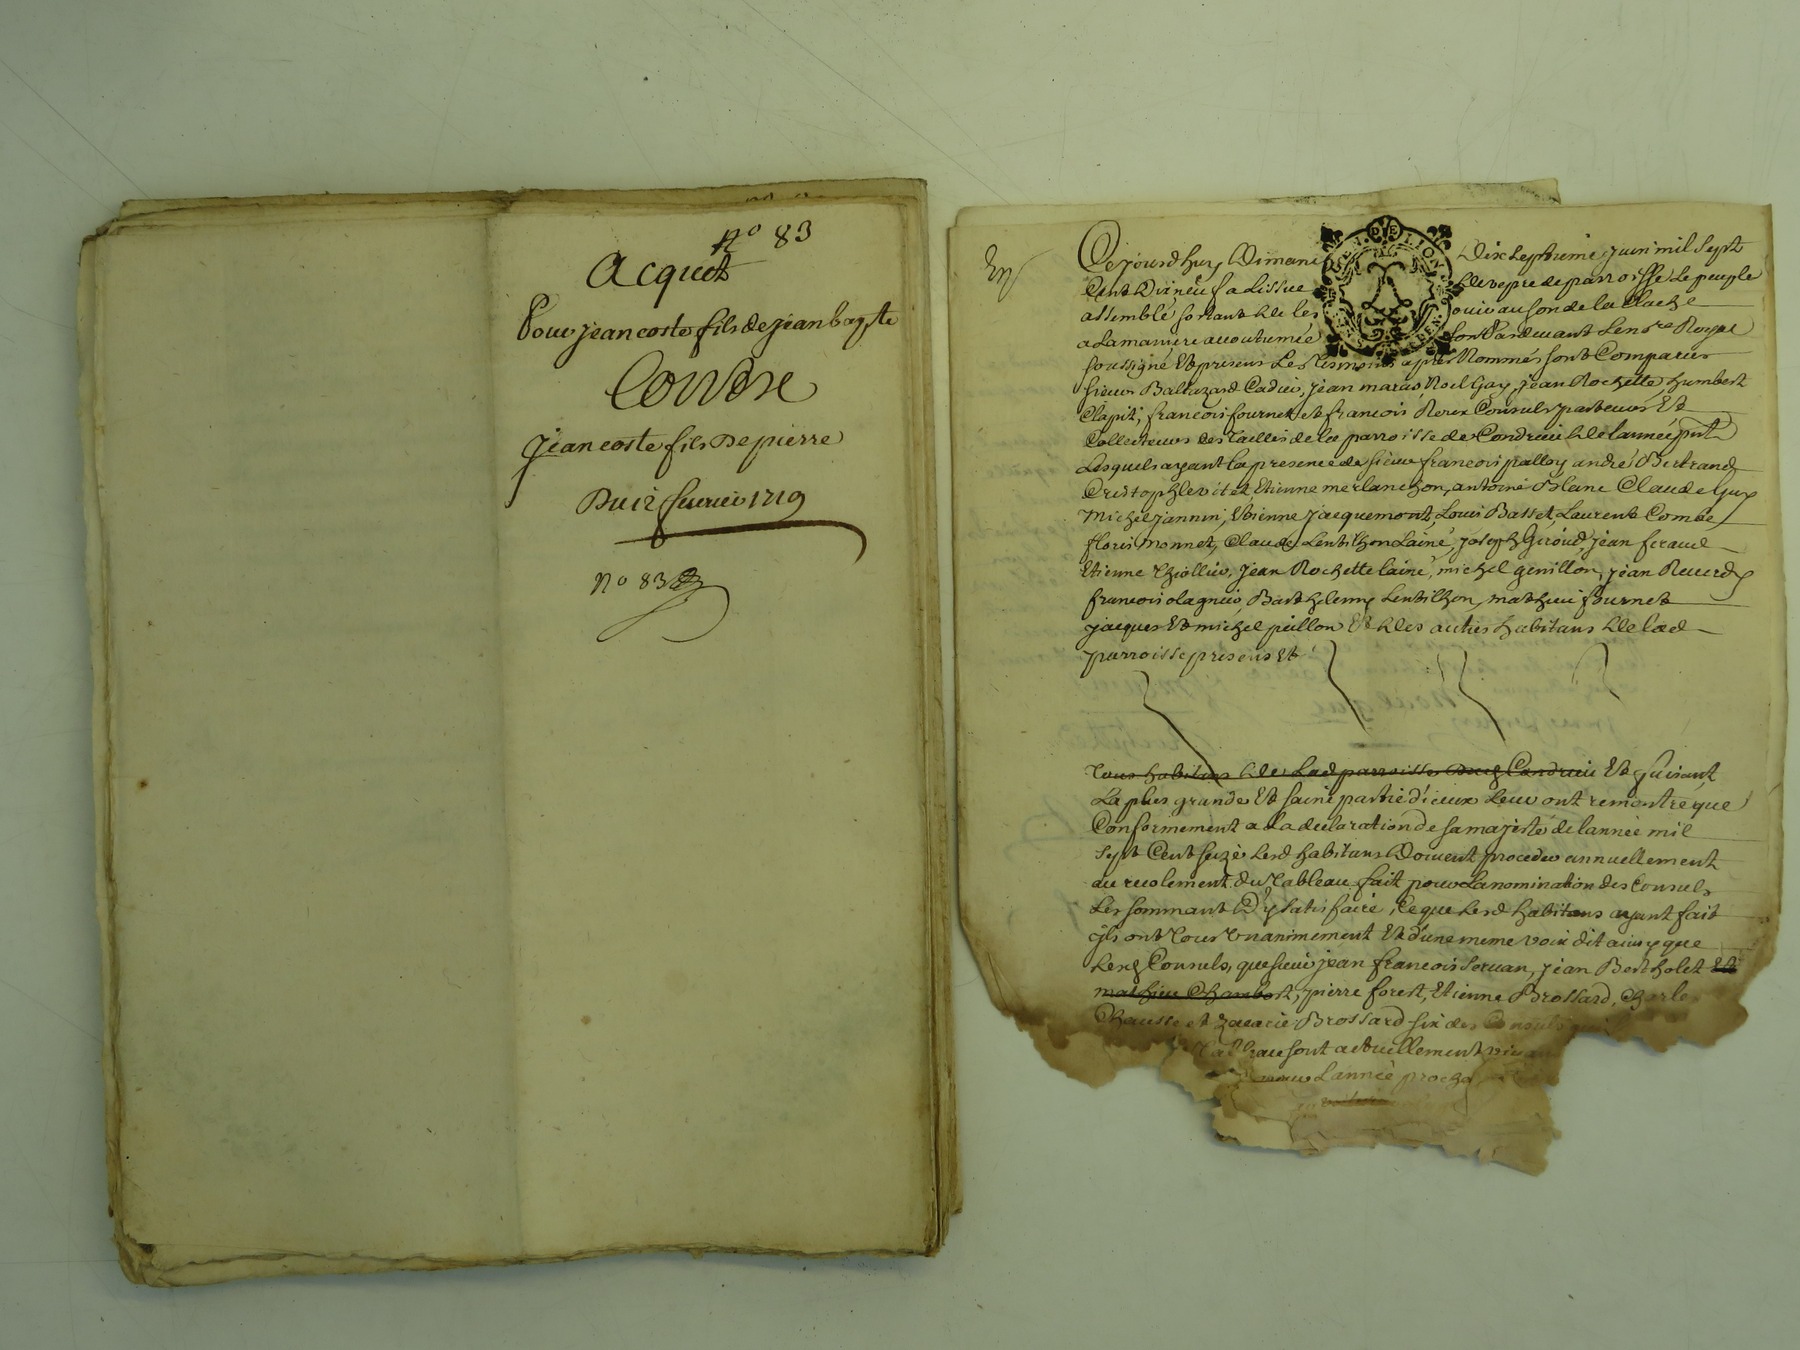 no 83
Acquet
Pour jean coste fils de jean bapte
Contre
jean coste fils De pierre
Du 12 feurier 1719
no 83
Cejourdhuy Dimanche Dixseptieme juin mil sept
Cent Dixneuf a Lissue de vepre de parroisse Le peuple
assemblé sortant de les ouie au son de la Cloche
a La maniere accoutumée sont Pardeuant Le nore Royal
soussigné Et presens Les Tesmoins apres Nommés sont Comparus
sieur Baltazard Cadier, jean maras, Noel Gay, jean Rochette humbert
Clapit, francois fournet et francois Reux Consuls parteurs Et
Collecteurs des Tailles de la parroisse de Condrieu de lannee pnte
Lesquels ayant la presence de sieur francois palloy andré Bertrand
Cristophle vitet Etienne merlanchon, antoine Blanc Claude Guy
michel jannin, Etienne jacquemont, Louis Basset, Laurent Combe
floris monnet, Claude Lentilhon Lainé, joseph Giroud, jean feraud
Etienne Thiollier, jean Rochette lainé, michel genillon, jean Reuerdy
francois olagnier, Barthlemy Lentilhon, mathieu fournet
jacques Et michel peillon Et des autres habitans de lad
parroisse presens Et
Tous habitans de Lad parroisse Condrieu Et faisant
La plus grande Et saine partie d'iceux Leur ont remontré que
Conformement a La declaration de sa majesté de lannée mil
sept Cent seize Lesd habitans Doiuent proceder annuellement
au recolement du Tableau fait pour La nomination des Consuls
Les sommant D'y satisfaire, Ce que Lesd habitans ayant fait
ils ont Tous Vnanimement Et d'une meme voix dit ainsy que
Lesd Consuls, que sieur jean francois Seruan, jean Bertholet Et
mathieu Chambost, pierre forest, Etienne Brossard, Charle
Chausse et Zacarie Brossard six des Consuls
Tableau sont actuellement
Lannée procha